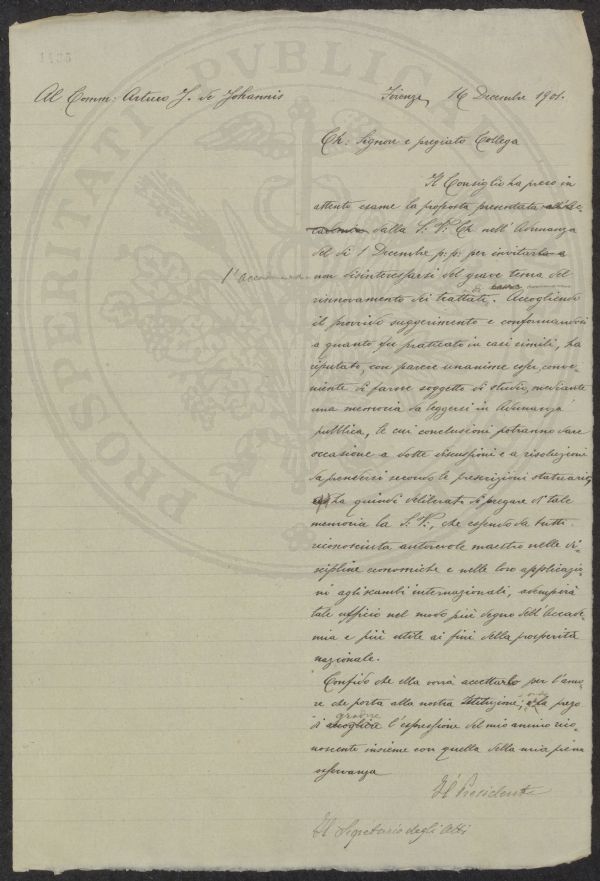 Al Comm: Arturo J. de Johannis
Firenze, 16 Decembre 1901.
Ch: Signore e pregiato Collega
Il Consiglio ha preso in
attento esame la proposta presentata
dalla S. V. Ch. nell'Adunanza
del dì 1 Decembre p: p: per invitarla a
l'Accademia
non disinteressarsi del grave tema del
rinnovamento dei trattati. Accogliendo
il provvido suggerimento e conformandosi
a quanto fu praticato in casi simili, ha
reputato, con parere unanime esser conve-
niente di farne soggetto di studio, mediante
una memoria da leggersi in Adunanza
pubblica, le cui conclusioni potranno dare
occasione a dotte discussioni e a risoluzioni
da prendersi secondo le prescrizioni statuarie,
ha quindi deliberato di pregare di tale
memoria la S. V., che essendo da tutti
riconosciuta autorevole maestro nelle di-
scipline economiche e nelle loro applicazio-
ni agli scambi internazionali, adempirà
tale ufficio nel modo più degno dell'Accade-
mia e più utile ai fini della prosperità
nazionale.
Confido che Ella vorrà accettarlo per l'amo-
re che porta alla nostra Istituzione, la prego
gradire
di accogliere l'espressione del mio animo rico-
noscente insieme con quella della mia piena
osservanza
Il Presidente
Il Segretario degli Atti
PROSPERITATI PUBLICAE